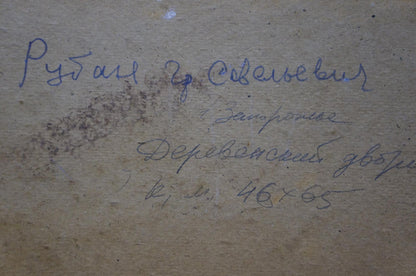 Рубан Гр Савельевич
Запорожье
Деревенский двори
к, м. 46×65